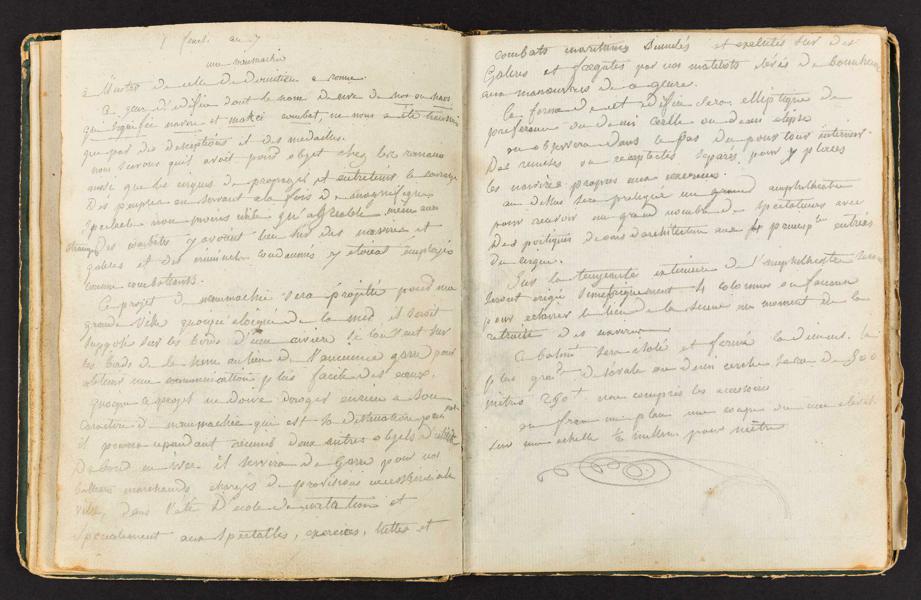 an 7
une naumachie
à l'instar de celle de domitien a rome.
Ce genre d'edifice dont le nom derive de
que signifie navire et makei combat, ne nous a été transmis
que par des descriptions et des medailles.
nous savons qu'il avoit pour objet chez les romains
ainsi que les cirques de et entretenir le courage
Des peuples en servant a la fois de magnifique
Spectacle non moins utile qu'agréable même aux
étrangers des combats y avoient lieu sur des navires et
galeres et des criminels condamnés y etoient employés
comme combattants.
Ce projet de naumachie sera projetté pour une
grande ville quoique eloignée de la mer, il seroit
supposé sur les bords d'une riviere tel sur
les bords de la seine au lieu de l'ancienne garre pour
obtenir une communication plus facile des eaux.
quoique ce projet ne doive deroger en rien a son
Caractere de naumachie qui est sa destination
il pourra cependant reunir deux autres objets d'utilité
Dabord en hiver il servira de Garre pour nos
bateaux marchands chargés de provisions a cette
ville, dans l'été D'ecole de natation et
specialement aux spectacles, exercices, luttes et
combats maritimes simulés et exécutés sur des
Galeres et fregates par nos matelots
aux manoeuvres de ce genre.
La forme de cet edifice sera elliptique de
preference ou demi cercle ou demi elipse
on observera dans le bas du pourtour interieur
Des remises ou receptacles separés pour y placer
les navires propres aux exercices.
au dessus sera pratiqué un grand amphitheatre
pour recevoir un grand nombre de spectateurs avec
Des portiques decorés d'architecture aux 4 principles entrées
du cirque.
Sur la exterieure de l'amphitheatre
erigé 4 colonnes ou fanaux
pour eclairer le lieu de la scene au moment de la
retraite des navires
Ce batimt sera isolé et fermé la dimens. la
plus grande de l'ovale ou demi cercle sera de 300
metres non compris les accessoires
on fera un plan une coupe ou une elevat.
sur une echelle millim. pour mètre